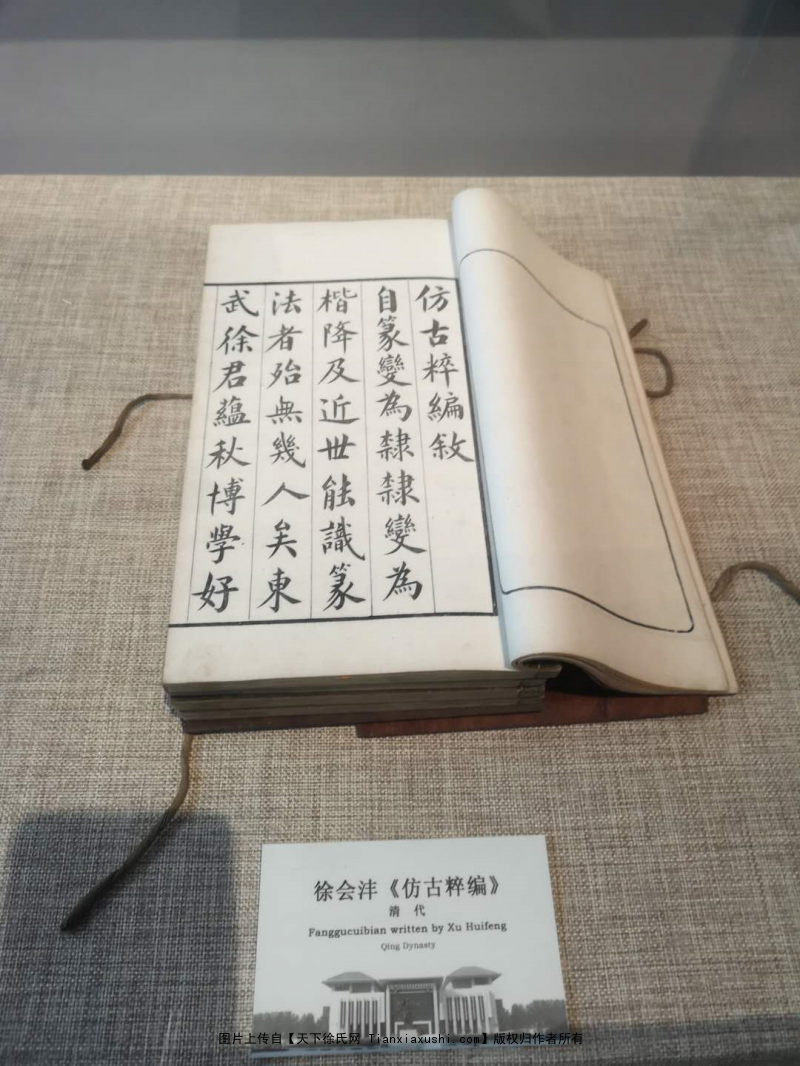 仿古粹編敘
自篆變為隸隸變為
楷降及近世能識篆
法者殆無幾人矣東
武徐君蘊秋博學好
徐会沣《仿古粹编》
清 代
Fanggucuibian written by Xu Huifeng
Qing Dynasty
图片上传自【天下徐氏网 Tianxiaxushi.com】版权归作者所有